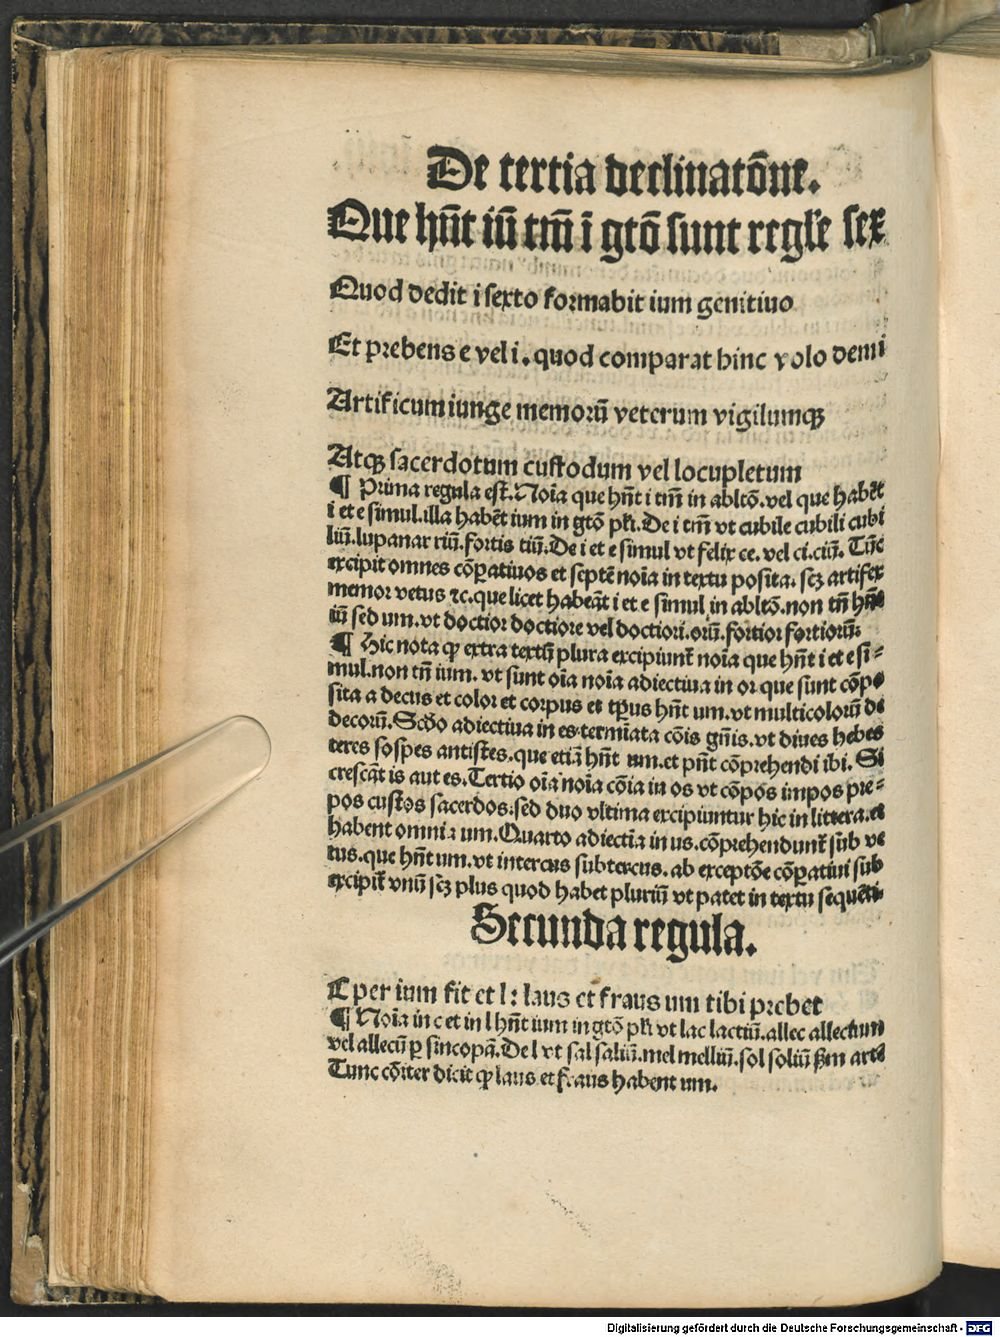 De tertia declinatōne.
Que hn̄t iū tm̄ ī gtō sunt regl'e sex
Quod dedit i sexto formabit ium genitiuo
Et prebens e vel i. quod comparat hinc volo demi
Artificum iunge memorū veterum vigilumqꝫ
Atqꝫ sacerdotum custodum vel locupletum
¶ Prima regula est. Noīa que hn̄t i tm̄ in abltō. vel que habēt
i et e simul. illa habēt ium in gtō pli. De i tm̄ vt cubile cubili cubi
liū. lupanar riū. fortis tiū. De i et e simul vt felix ce. vel ci. ciū. Tūc
excipit omnes cōꝑatiuos et septē noīa in textu posita. scꝫ artifex
memor vetus ⁊c. que licet habeāt i et e simul in abltō. non tn̄ hn̄t
iū sed um. vt doctior doctiore vel doctiori. orū. fortior fortiorū.
¶ Hic nota ꝙ extra textū plura excipiunt̄ noīa que hn̄t i et e si⸗
mul. non tn̄ ium. vt sunt oīa noīa adiectiua in or que sunt cōpo
sita a decus et color et corpus et tꝑus hn̄t um. vt multicolorū de
decorū. Scd̄o adiectiua in es termīata cōis gn̄is. vt diues hebes
teres sospes antistes. que etiā hn̄t um. et pn̄t cōprehendi ibi. Si
crescāt is aut es. Tertio oīa noīa cōia in os vt cōpos impos pre⸗
pos custos sacerdos. sed duo vltima excipiuntur hic in littera. et
habent omnia um. Quarto adiectīa in us. cōprehendunt̄ sub ve
tus. que hn̄t um. vt intercus subtercus. ab exceptōe cōꝑatiui sub
excipit̄ vnū scꝫ plus quod habet pluriū vt patet in textu sequēti
Secunda regula.
C per ium fit et l: laus et fraus um tibi prebet
¶ Noīa in c et in l hn̄t ium in gtō pli vt lac lactiū. allec allectium
vel allecū ꝑ sincopā. De l vt sal saliū. mel melliū. sol soliū ẞm artē
Tunc cōiter dicit ꝙ laus et fraus habent um.
Digitalisierung gefördert durch die Deutsche Forschungsgemeinschaft - DFG